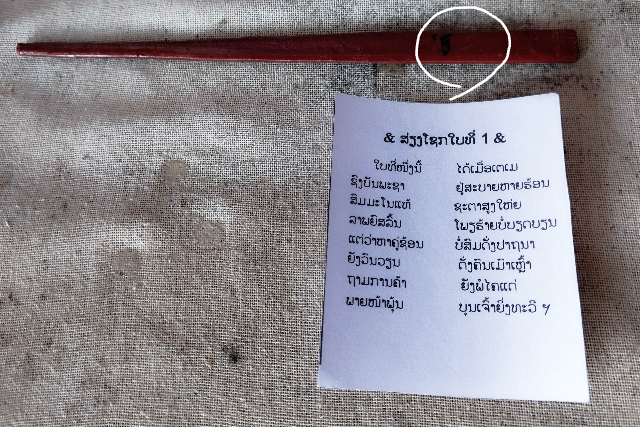 & ສ່ຽງໂຊກໃບທີ່ 1 &
ໃບທີ່ໜຶ່ງນີ້ ໄດ້ເມື່ອເຕເມ
ຊົງບັນພະຊາ ຢູ່ສະບາຍຫາຍຮ້ອນ
ສົມມະໂນແທ້ ຊະຕາສູງໃຫ່ຍ
ລາພຍົສລົ້ນ ໂພຽຮ້າຍບໍ່ບຽດບຽນ
ແຕ່ວ່າຫາຄູ່ຊ້ອນ ບໍ່ສົມດັ່ງປາຖນາ
ຍັງວິນວຽນ ດັ່ງຄົນເມົາເຫຼົ້າ
ຖາມການຄ້າ ຍັງພໍໄຄແດ່
ພາຍໜ້າພຸ້ນ ບຸນເຈົ້າຍິ່ງທະວີ ຯ